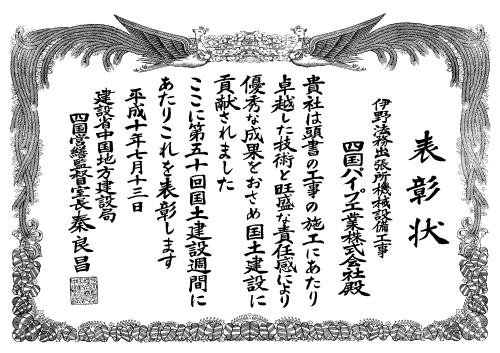 表彰状
伊野法務出張所機械設備工事
四国パイプ工業株式会社殿
貴社は頭書の工事の施工にあたり
卓越した技術と旺盛な責任感により
優秀な成果をおさめ国土建設に
貢献されました
ここに第五十回国土建設週間に
あたりこれを表彰します
平成十年七月十三日
建設省中国地方建設局
四国営繕監督室長秦良昌